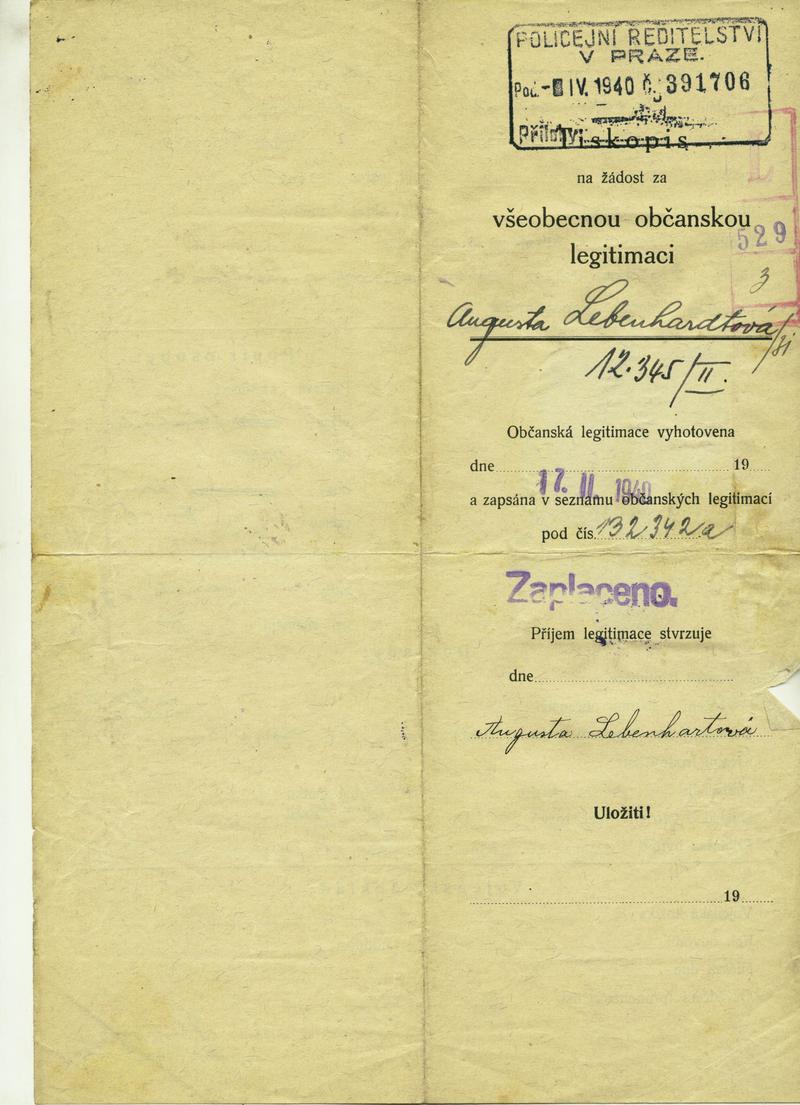 POLICEJNÍ ŘEDITELSTVÍ
V PRAZE.
IV. 1940 č. 391706
Přílohy
Tiskopis
na žádost za
všeobecnou občanskou
legitimaci
L
529
3
Augusta Lebenhardtová
12.345/II.
Občanská legitimace vyhotovena
dne 19
17. II. 1940
a zapsána v seznamu občanských legitimací
pod čís. 132342a
Zaplaceno.
Příjem legitimace stvrzuje
dne
Augusta Lebenhartová
Uložiti!
19